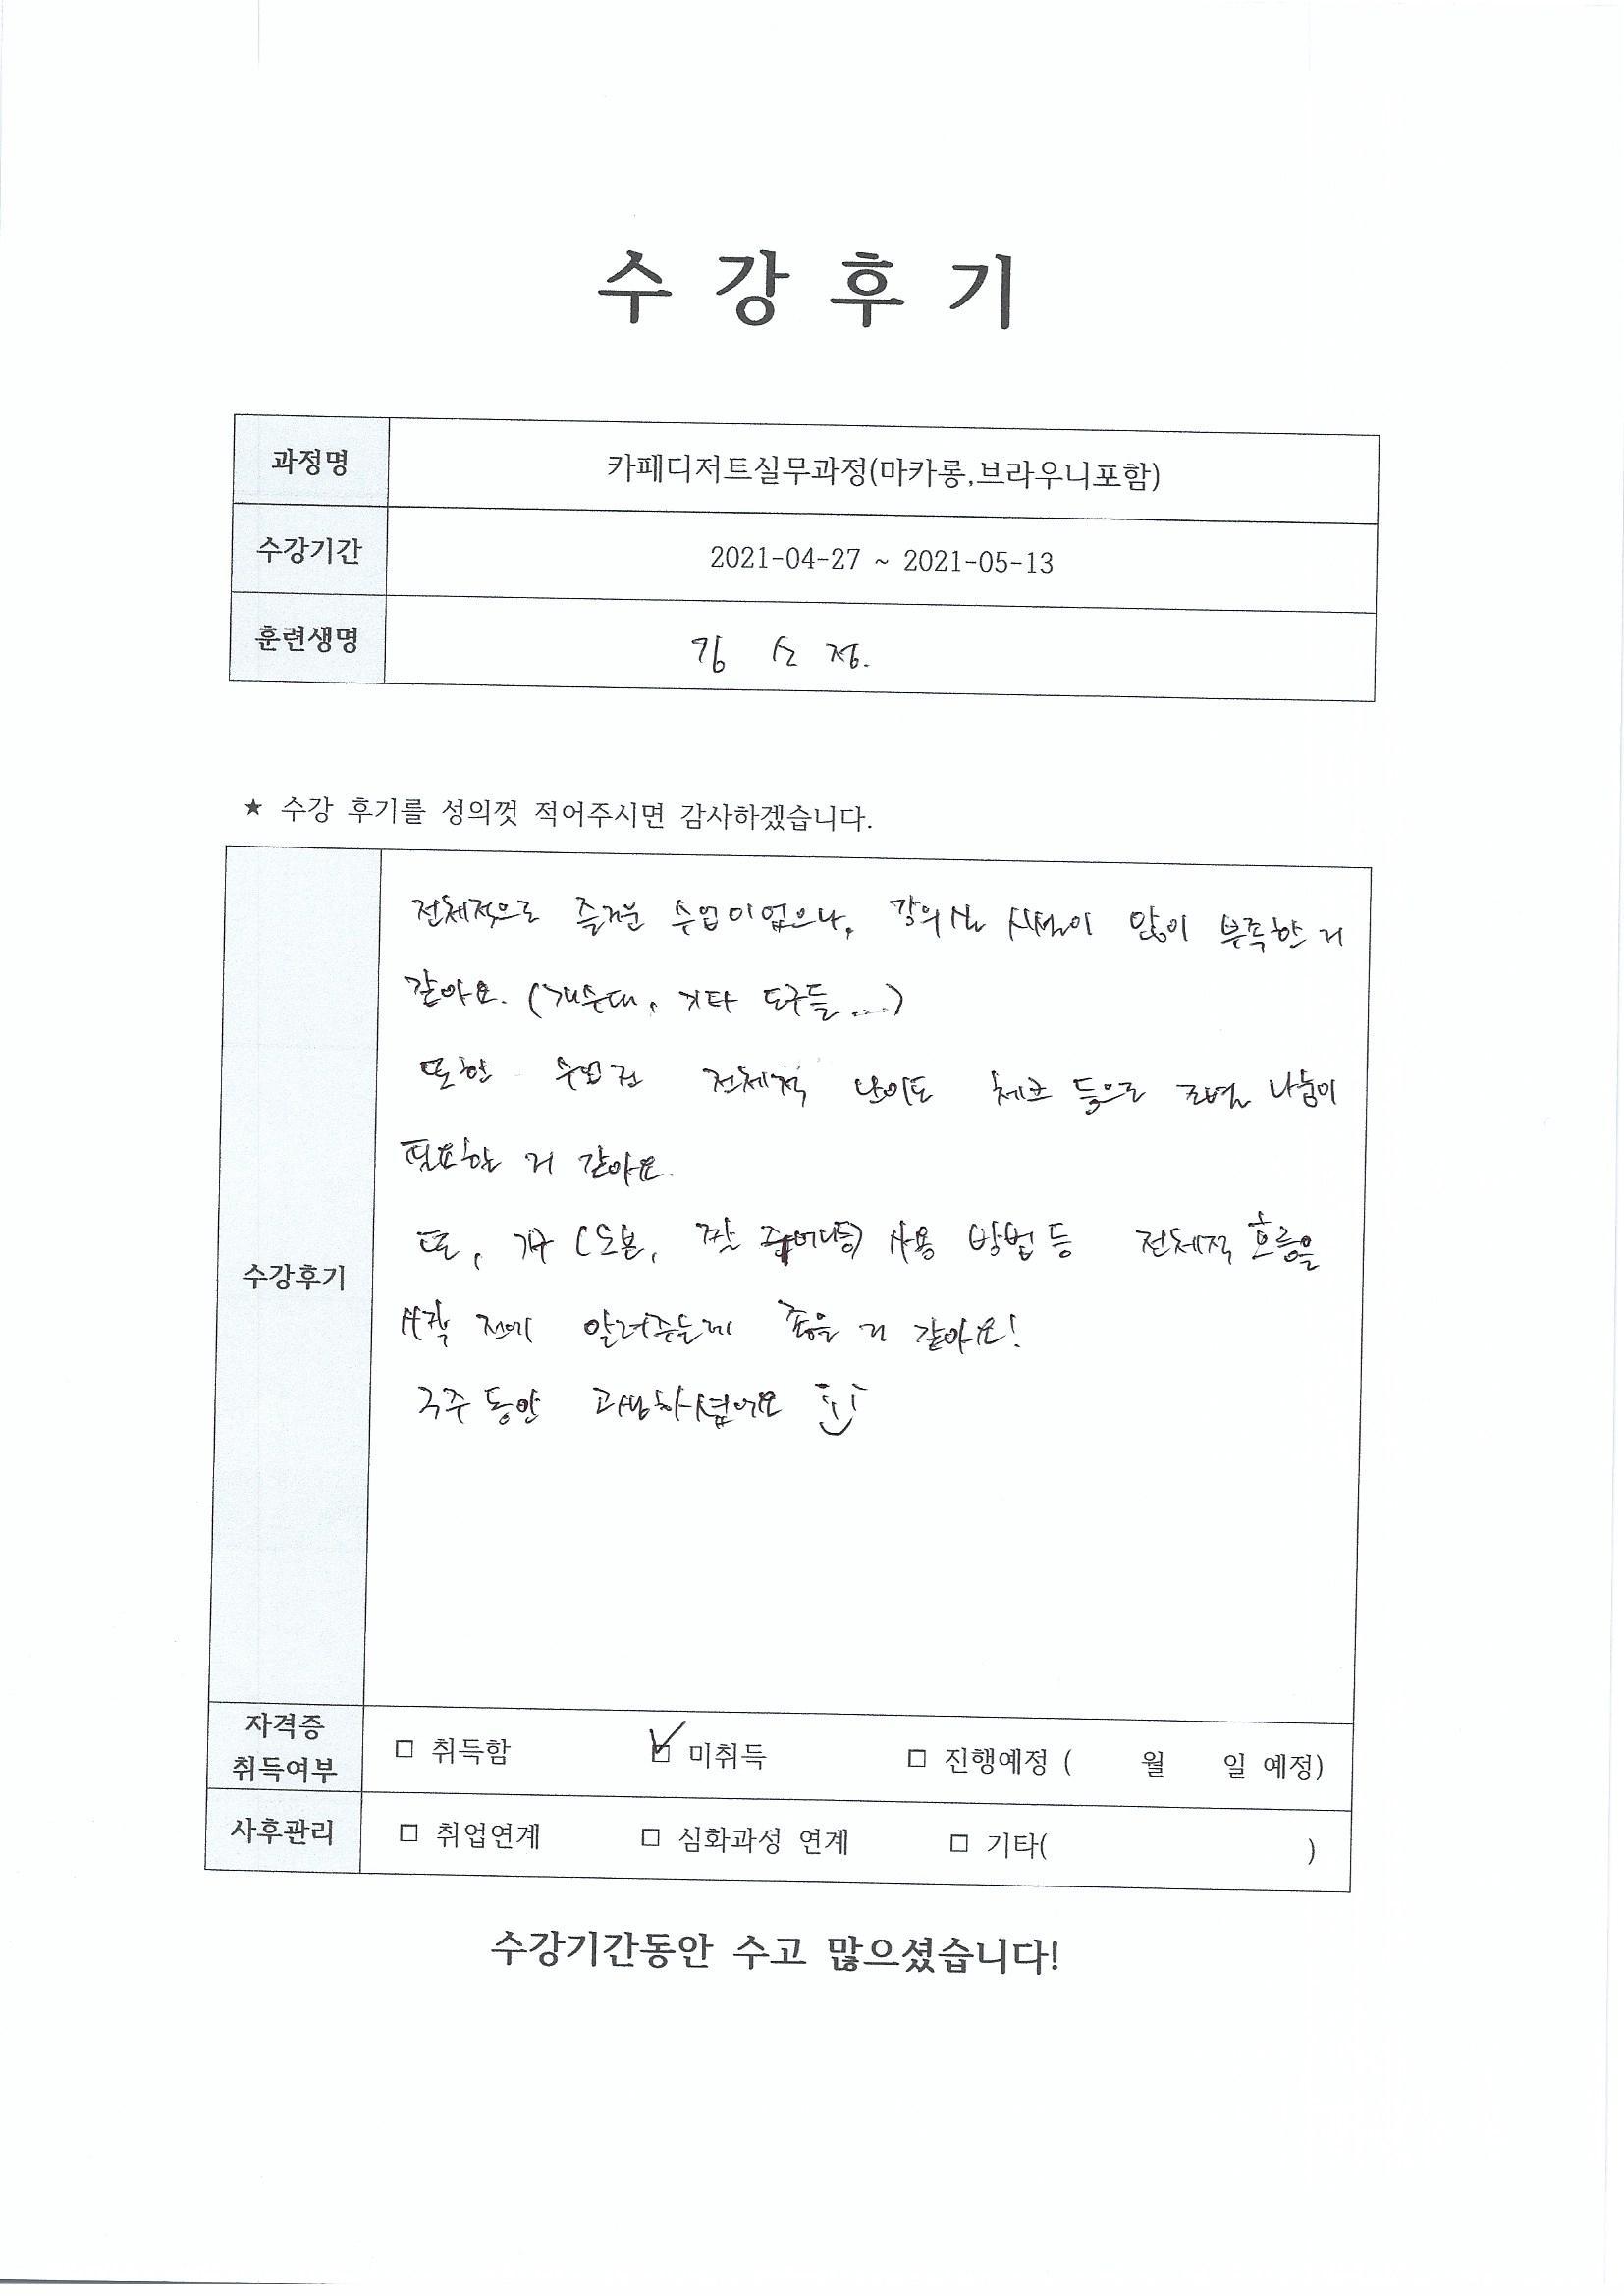 수 강 후 기
과정명 카페디저트실무과정(마카롱,브라우니포함)
수강기간 2021-04-27 ~ 2021-05-13
훈련생명 김 소 정.
★ 수강 후기를 성의껏 적어주시면 감사하겠습니다.
수강후기
전체적으로 즐거운 수업이었으나, 강의실 시설이 많이 부족한 거
같아요. (개수대, 기타 도구들...)
또한 수업전 전체적 난이도 체크 등으로 조별 나눔이
필요한 거 같아요.
또, 기구 (오븐, 짤 주머니등) 사용 방법 등 전체적 흐름을
시작 전에 알려주는게 좋을 거 같아요!
3주 동안 고생하셨어요
자격증 취득여부 □ 취득함 □ 미취득 □ 진행예정 ( 월 일 예정)
사후관리 □ 취업연계 □ 심화과정 연계 □ 기타( )
수강기간동안 수고 많으셨습니다!